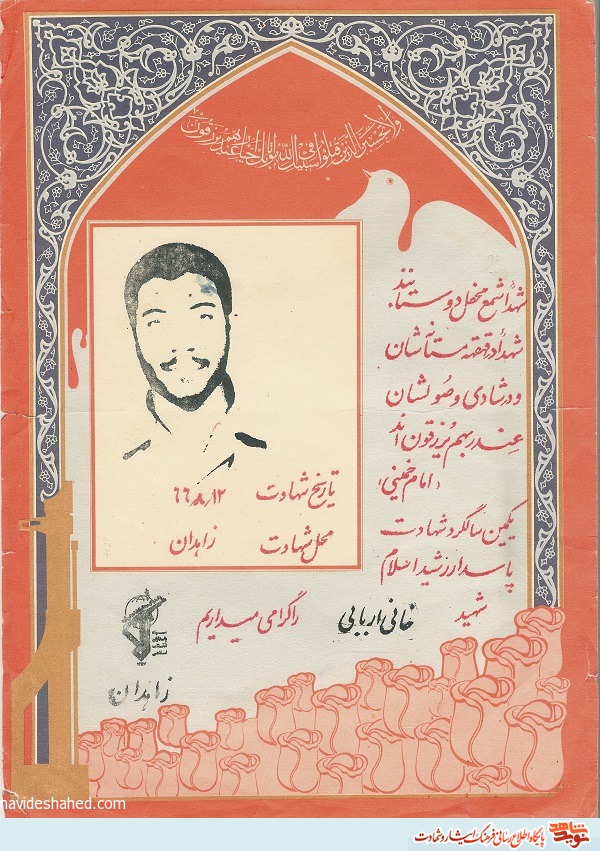 ولا تحسبن الذین قتلوا فی سبیل الله امواتا بل احیاء عند ربهم یرزقون
شهدا شمع محفل دوستانند
شهدا در قهقهه مستانشان
و در شادی وصولشان
عند ربهم یرزقون اند
«امام خمینی»
تاریخ شهادت ۶۶٫۸٫۱۲
محل شهادت زاهدان
یکمین سالگرد شهادت
پاسدار رشید اسلام
شهید خانی اربابی را گرامی میداریم
زاهدان
navideshahed.com
نوید شاهد پایگاه اطلاع رسانی فرهنگ ایثار و شهادت